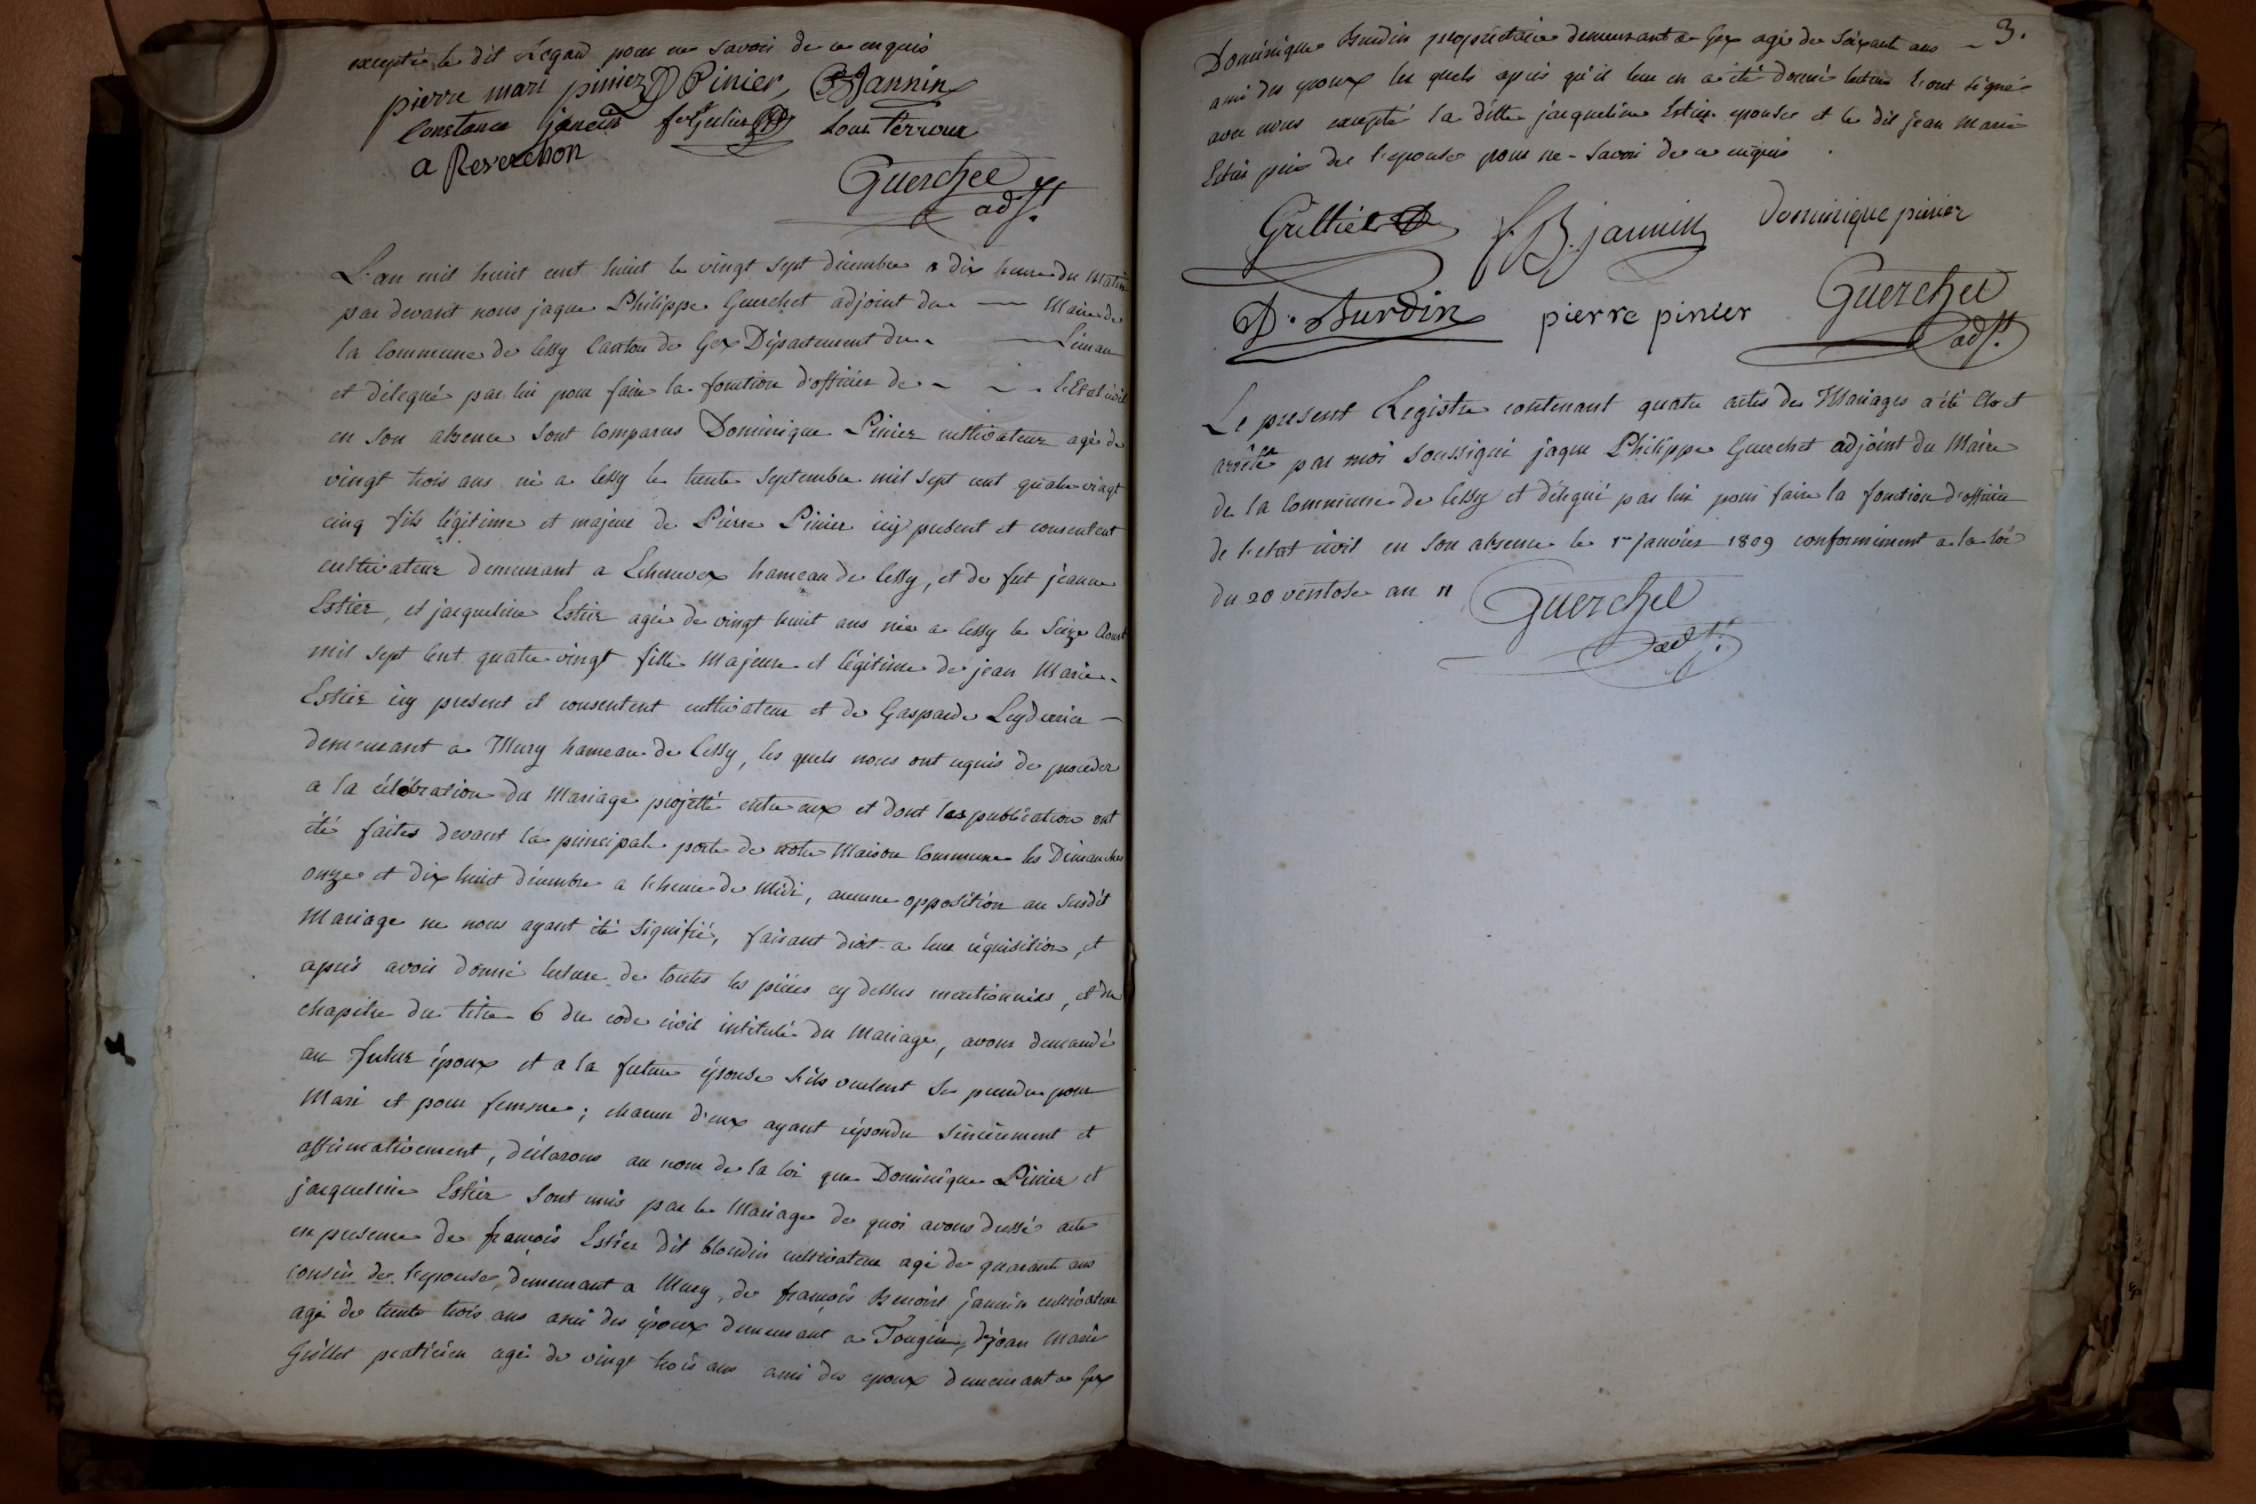 excepté le dit Legard pour ne savoir de ce enquis
pierre marì piniez Pinier, BJannin
Constance Louis Terroux
a Reverchon
Guerchet
adjt.
L'an mil huit cent huit le vingt sept décembre a dix heure du matin
par devant nous jaque Philippe Guerchet adjoint du — Maire de
la Commune de Cessy Canton de Gex Département du — Léman
et délegué par lui pour faire la fonction d'officier de - - - l'Etat civil
en son absence sont comparus Dominique Pinier cultivateur agé de
vingt trois ans né a Cessy le trente septembre mil sept cent quatre vingt
cinq fils légitime et majeur de Pierre Pinier icy présent et consentent
cultivateur demeurant a Echenevex hameau de Cessy, et de fut jeanne
Estier, et jacqueline Estier agée de vingt huit ans née a Cessy le seize Aoust
mil sept Cent quatre vingt fille Majeure et légitime de jean Marie
Estier icy présent et consentent cultivateur et de Gasparde Leyderrier —
demeurant a Mury hameau de Cessy, les quels nous ont requis de proceder
a la célébration du Mariage projetté entre eux et dont les publication ont
été faites devant la principale porte de notre Maison Commune les Dimanches
onze et dix huit décembre a l'heure de Midi, aucune opposition au susdit
Mariage ne nous ayant été signifié, faisant droit a leur réquisition, et
après avoir donné lecture de toutes les pièces cy dessus mentionnées, et du
chapitre du titre 6 du code civil intitulé du Mariage, avons demandé
au futur époux et a la future épouse s'ils veulent se prendre pour
Mari et pour femme; chacun d'eux ayant répondu sincèrement et
affirmativement, déclarons au nom de la loi que Dominique Pinier et
jacqueline Estier sont unis par le Mariage de quoi avons dressé acte
en presence de françois Estier dit blondin cultivateur agé de quarante ans
cousin de l'epouse, demeurant a Mury, de françois Benoist jannin cultivateur
agé de trente trois ans ami des époux demeurant a Tougin, de jean Marie
Grillet praticien agé de vingt trois ans ami des epoux demeurant a Gex
3.
Dominique Burdin propriétaire demeurant a Gex agé de soixante ans -
ami des epoux les quels après qu'il leur en a été donné lecture l'ont signé
avec nous excepté la ditte jacqueline Estier epouse et le dit jean marie
Estier père de l'epouse pour ne savoir de ce enquis.
Grilliet f. B. jannin Dominique pinier
D. Burdin pierre pinier Guerchet
adjt.
Le présent Registre contenant quatre actes de Mariages a été Clos et
arrêté par moi soussigné jaque Philippe Guerchet adjoint du Maire
de la Commune de Cessy et délegué par lui pour faire la fonction d'officier
de l'etat civil en son absence le 1er janvier 1809 conformément a la loi
du 20 ventose an 11
Guerchet
adjt.